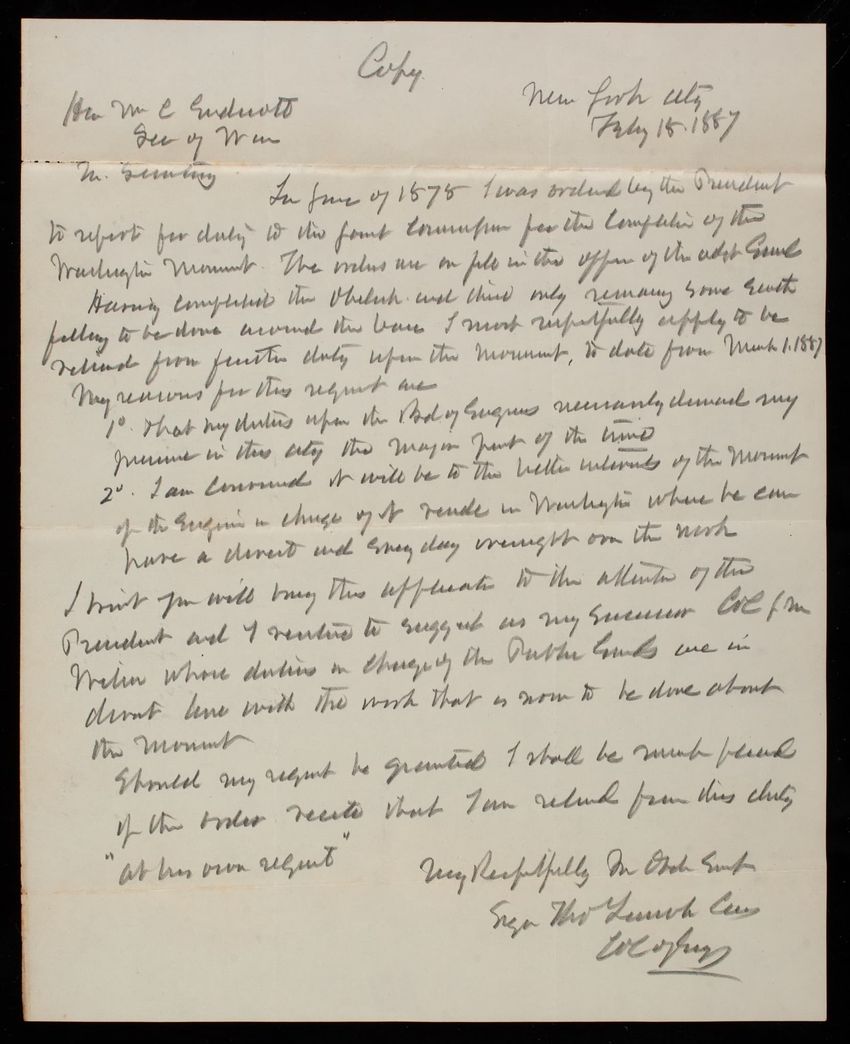 Copy
New York City
Feby 18. 1887
Hon Wm C Endicott
Sec of War
Mr. Secretary
In June of 1878 I was ordered by the President
to report for duty to the Joint Commission for the Completion of the
Washington Monument. The orders are on file in the office of the Adjt Genl
Having completed the Obelisk and there only remaing some Earth
filling to be done around the base I most respectfully apply to be
relieved from further duty upon the Monument, to date from March 1. 1887
My reasons for this request are
1o. That my duties upon the Bd of Engineers necessarily demand my
presence in this city the major part of the time
2o. I am convinced it will be to the better interests of the Monument
if the Engineer in charge of it reside in Washington where he can
have a direct and every day oversight over the work
I trust you will bring this application to the attention of the
President and I venture to suggest as my successor Col Jno
Wilson whose duties in charge of the Public Grounds are in
direct line with the work that is now to be done about
the Monument
Should my request be granted I shall be much pleased
if the order recite that I am relieved from this duty
"at his own request"
Very Respectfully Yr Obdt Servt
Sgn Thos Lincoln Casey
Col of Engrs